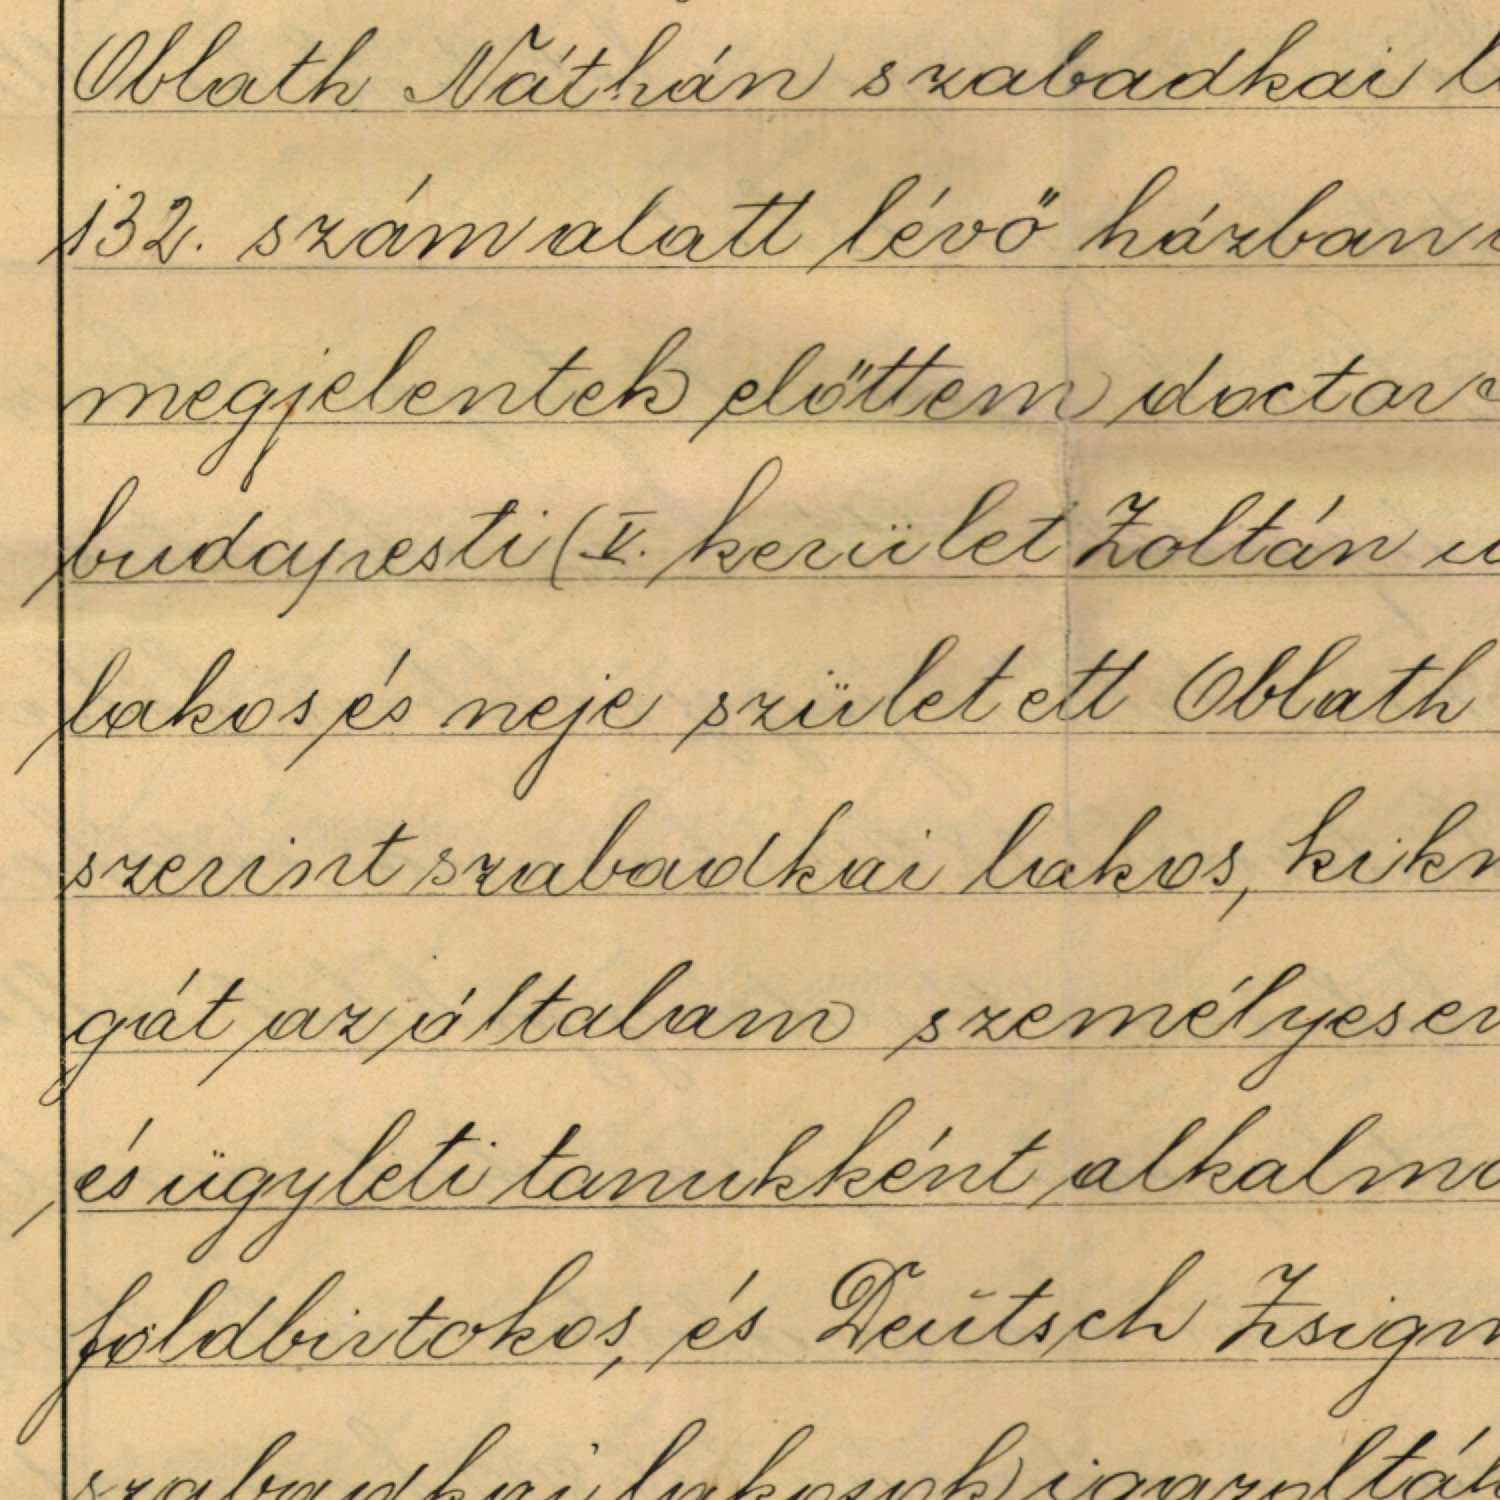 Oblath Náthán szabadkai l
132. szám alatt lévő házban
megjelentek előttem doctor
budapesti (V. kerület Zoltán u
lakos és neje született Oblath
szerint szabadkai lakos, kikn
gát az általam személyesen
és ügyleti tanukként alkalma
földbirtokos, és Deutsch Zsigm
szabadkai lakosok igazolták